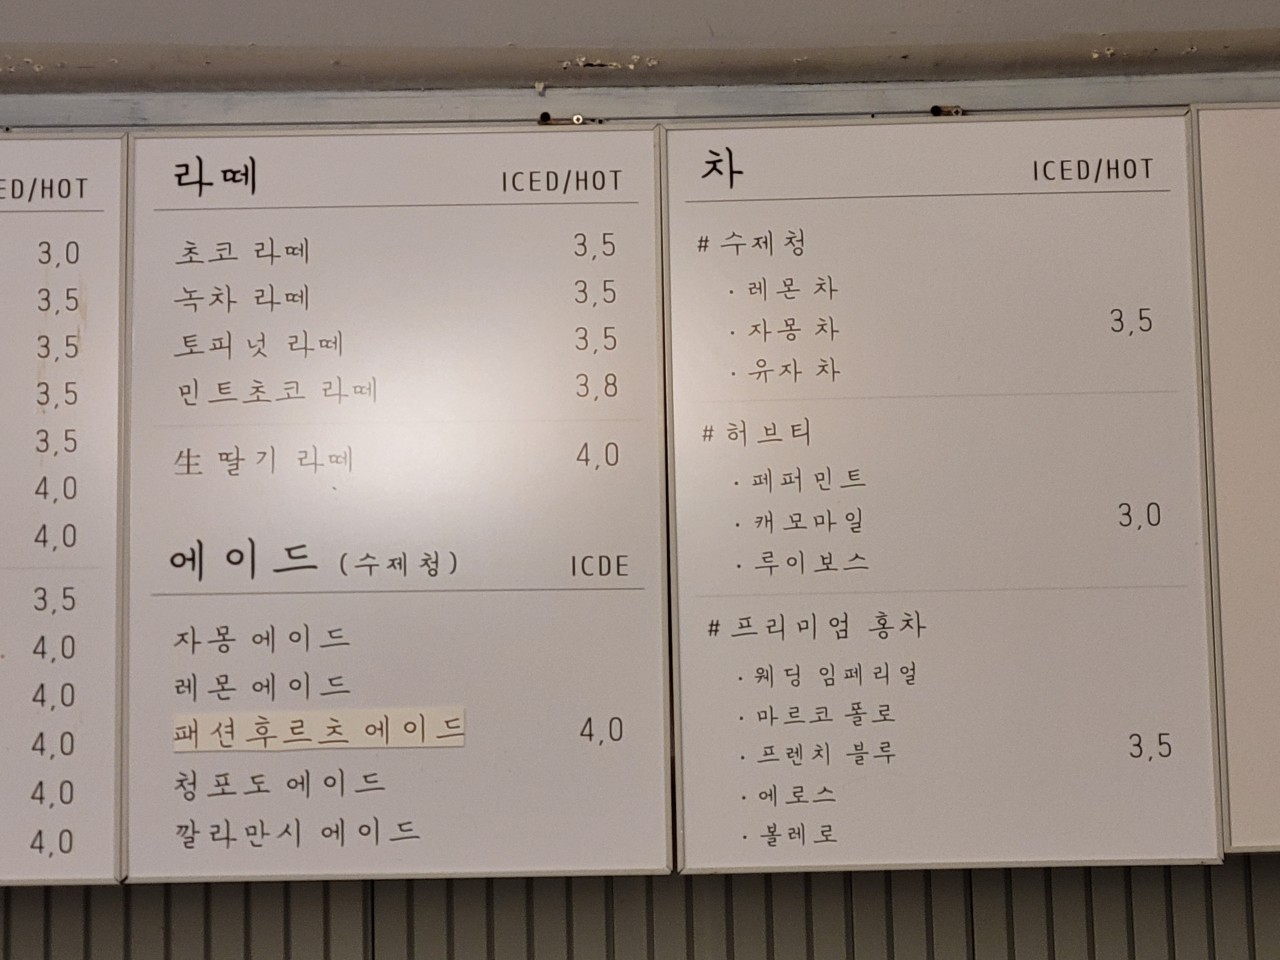 ED/HOT
3,0
3,5
3,5
3,5
3,5
4,0
4,0
3,5
4,0
4,0
4,0
4,0
4,0
라떼 ICED/HOT
초코 라떼 3,5
녹차 라떼 3,5
토피넛 라떼 3,5
민트초코 라떼 3,8
生 딸기 라떼 4,0
에이드 (수제청) ICDE
자몽에이드
레몬에이드
패션후르츠 에이드 4,0
청포도에이드
깔라만시 에이드
차 ICED/HOT
# 수제청
· 레몬차
· 자몽차 3,5
· 유자차
# 허브티
· 페퍼민트
· 캐모마일 3,0
· 루이보스
# 프리미엄 홍차
· 웨딩 임페리얼
· 마르코 폴로
· 프렌치 블루 3,5
· 에로스
· 볼레로